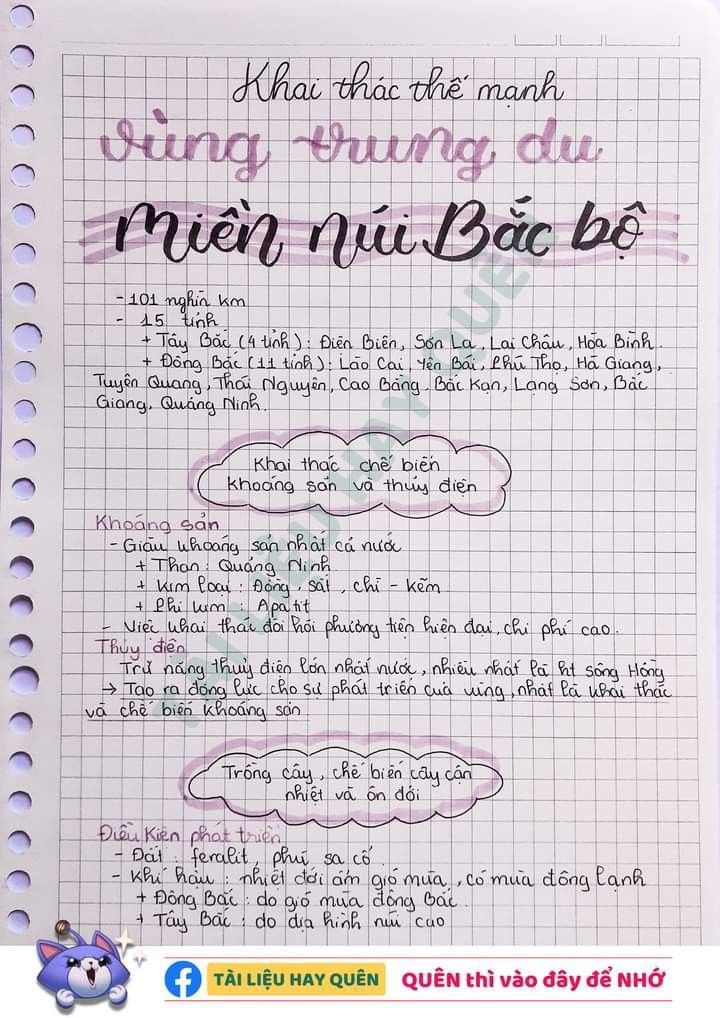 Khai thác thế mạnh
vùng trung du
miền núi Bắc bộ
- 101 nghìn km
- 15 tỉnh
+ Tây Bắc (4 tỉnh): Điện Biên, Sơn La, Lai Châu, Hòa Bình.
+ Đông Bắc (11 tỉnh): Lào Cai, Yên Bái, Phú Thọ, Hà Giang,
Tuyên Quang, Thái Nguyên, Cao Bằng, Bắc Kạn, Lạng Sơn, Bắc
Giang, Quảng Ninh.
Khai thác chế biến
khoáng sản và thủy điện
Khoáng sản
- Giàu khoáng sản nhất cả nước
+ Than: Quảng Ninh
+ Kim loại: Đồng, sắt, chì - kẽm
+ Phi kim: Apatit
- Việc khai thác đòi hỏi phương tiện hiện đại, chi phí cao.
Thủy điện
Trữ năng thuỷ điện lớn nhất nước, nhiều nhất là ht sông Hồng
→ Tạo ra động lực cho sự phát triển của vùng, nhất là khai thác
và chế biến khoáng sản
Trồng cây, chế biến cây cận
nhiệt và ôn đới
Điều kiện phát triển
- Đất: feralit, phù sa cổ
- Khí hậu: nhiệt đới ẩm gió mùa, có mùa đông lạnh
+ Đông Bắc: do gió mùa đông Bắc
+ Tây Bắc: do địa hình núi cao
TÀI LIỆU HAY QUÊN
TÀI LIỆU HAY QUÊN QUÊN thì vào đây để NHỚ